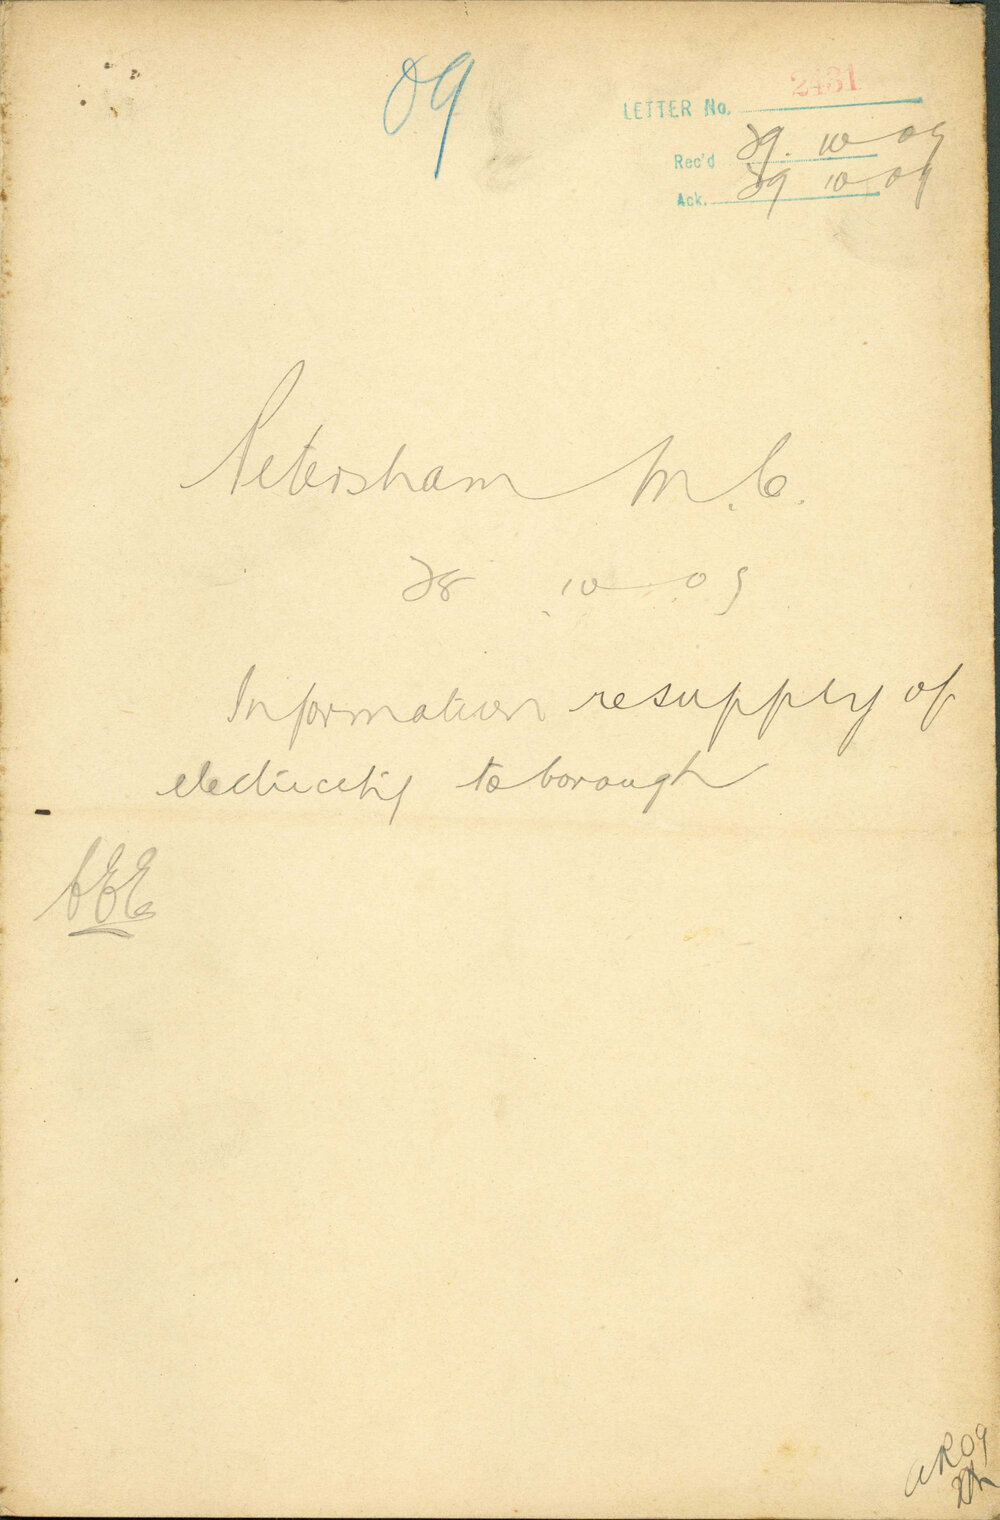 09
LETTER No. 2431
Rec'd 29. 10 09
Ack. 29 10 09
Petersham M.C.
28 . 10 . 09
Information re supply of
electricity to borough
CEE
AR09